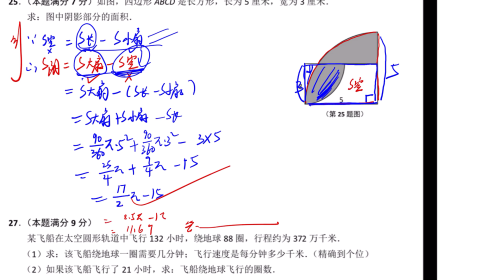 25. (本题满分 7 分) 如图, 四边形 ABCD 是长方形, 长为 5 厘米, 宽为 3 厘米.
求: 图中阴影部分的面积.
∵ S空 = S长 - S小扇
∴ S阴 = S大扇 - S空
= S大扇 - (S长 - S小扇)
= S大扇 + S小扇 - S长
= 90/360 π·5² + 90/360 π·3² - 3×5
= 25/4 π + 9/4 π - 15
= 17/2 π - 15
= 11.69
S空
3
5
5
(第 25 题图)
27. (本题满分 9 分)
某飞船在太空圆形轨道中飞行 132 小时, 绕地球 88 圈, 行程约为 372 万千米.
(1) 求: 该飞船绕地球一圈需要几分钟; 飞行速度是每分钟多少千米. (精确到个位)
(2) 如果该飞船飞行了 21 小时, 求: 飞船绕地球飞行的圈数.